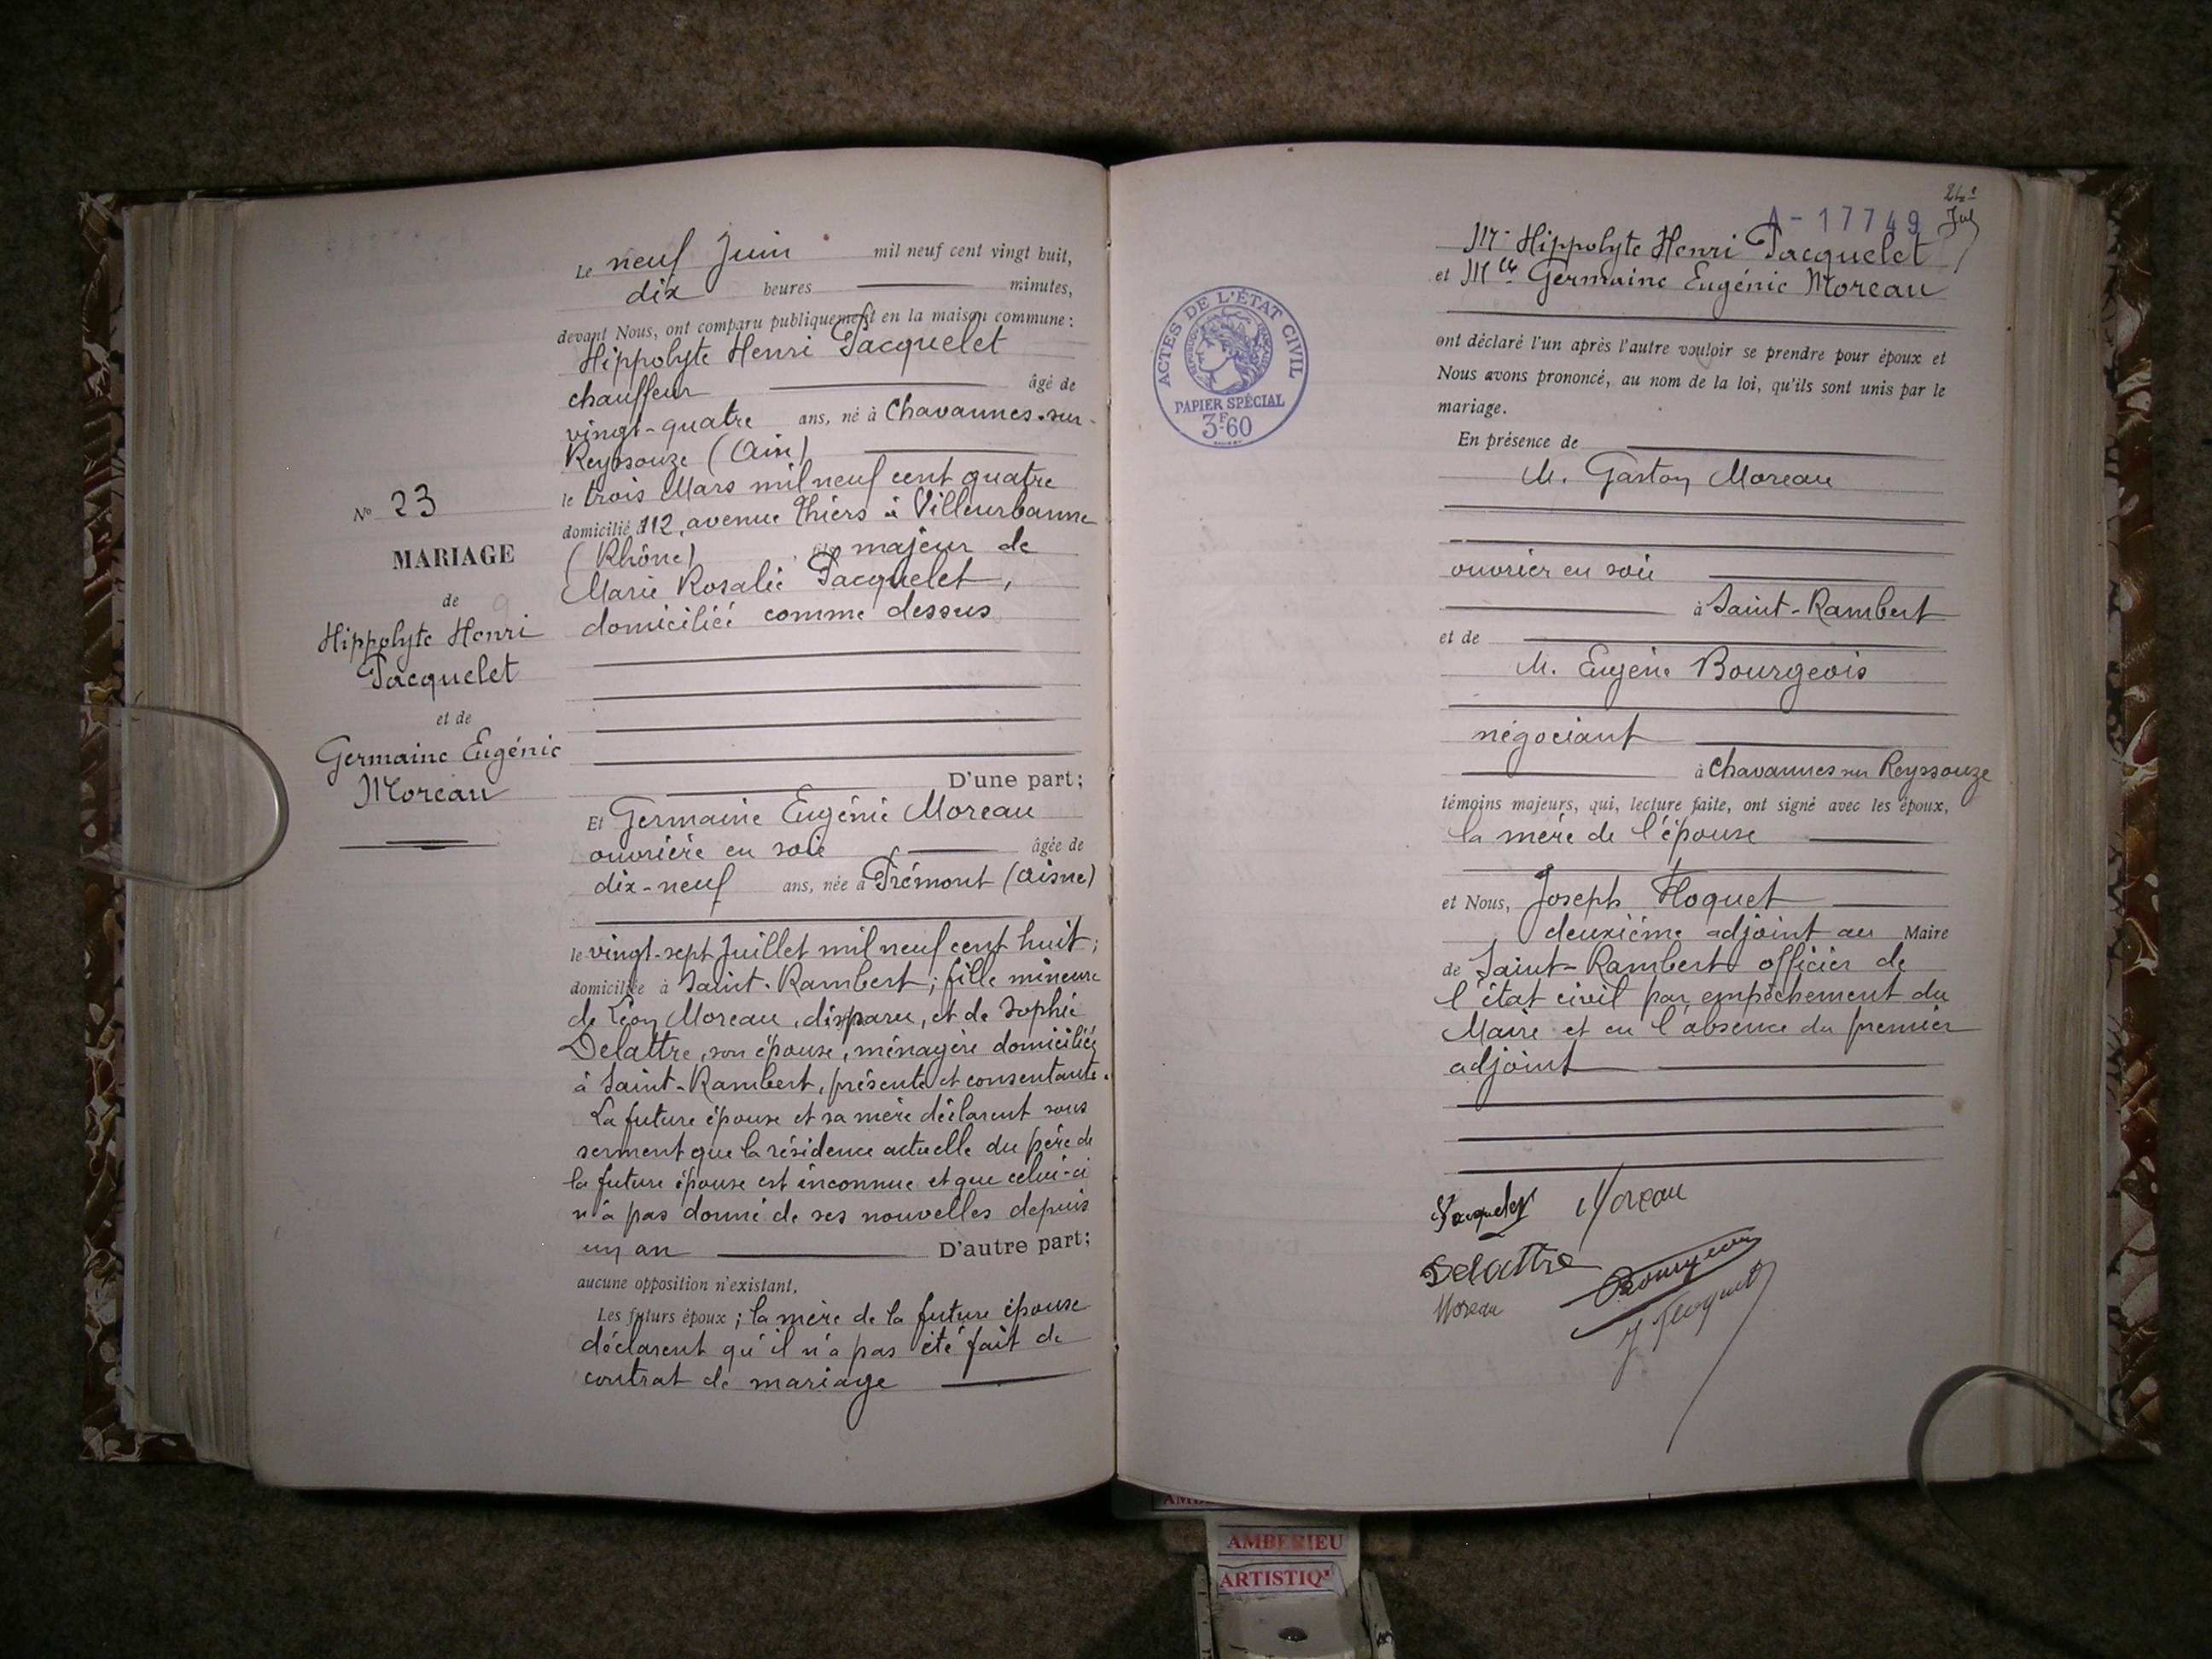 Le neuf Juin mil neuf cent vingt huit,
dix heures minutes,
devant Nous, ont comparu publiquement en la maison commune :
Hippolyte Henri Pacquelet
chauffeur âgé de
vingt-quatre ans, né à Chavannes-sur-
Reyssouze (Ain)
le trois Mars mil neuf cent quatre
domicilié à 112, avenue Thiers à Villeurbanne
(Rhône), fils majeur de
Marie Rosalie Pacquelet,
domiciliée comme dessus
D'une part;
Et Germaine Eugénie Moreau
ouvrière en soie âgée de
dix-neuf ans, née à Frémont (Aisne)
le vingt-sept Juillet mil neuf cent huit;
domiciliée à Saint-Rambert; fille mineure
de Léon Moreau, disparu, et de Sophie
Delattre, son épouse, ménagère domiciliée
à Saint-Rambert, présente et consentante.
La future épouse et sa mère déclarent sous
serment que la résidence actuelle du père de
la future épouse est inconnue et que celui-ci
n'a pas donné de ses nouvelles depuis
un an D'autre part;
aucune opposition n'existant.
Les futurs époux ; la mère de la future épouse
déclarent qu'il n'a pas été fait de
contrat de mariage
N° 23
MARIAGE
de
Hippolyte Henri
Pacquelet
et de
Germaine Eugénie
Moreau
A-17749
Mr Hippolyte Henri Pacquelet
et Mlle Germaine Eugénie Moreau
ont déclaré l'un après l'autre vouloir se prendre pour époux et
Nous avons prononcé, au nom de la loi, qu'ils sont unis par le
mariage.
En présence de
M. Gaston Moreau
ouvrier en soie
à Saint-Rambert
et de
M. Eugène Bourgeois
négociant
à Chavannes sur Reyssouze
témoins majeurs, qui, lecture faite, ont signé avec les époux,
la mère de l'épouse
et Nous, Joseph Floquet
deuxième adjoint au Maire
de Saint-Rambert officier de
l'état civil par empêchement du
Maire et en l'absence du premier
adjoint
Pacquelet Moreau
Delattre Bourgeois
Moreau J Floquet
ACTES DE L'ÉTAT CIVIL
RÉPUBLIQUE FRANÇAISE
PAPIER SPÉCIAL
3F60
AMBERIEU
ARTISTIQ